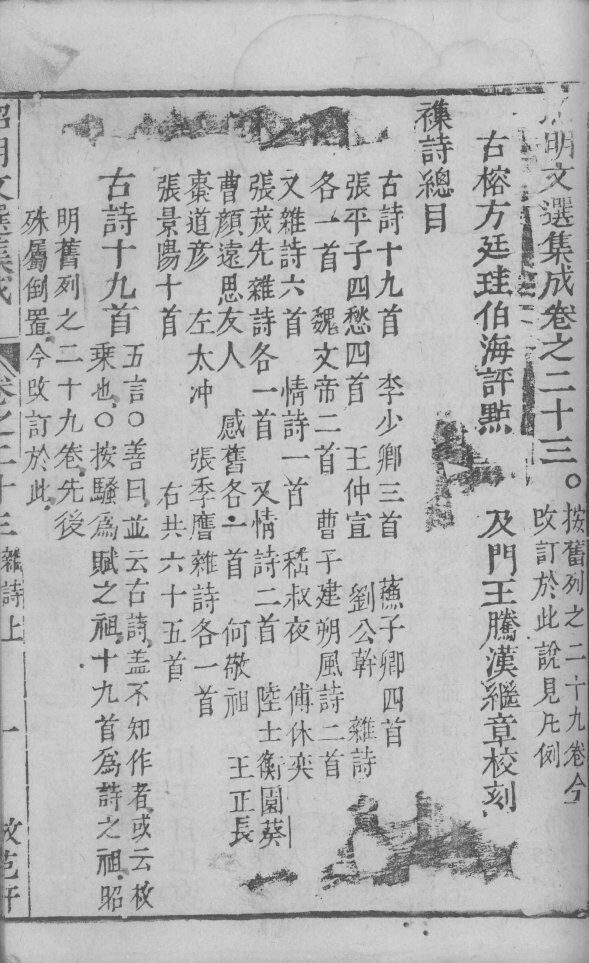 明文選集成卷之二十三。
按舊列之二十九卷今
改訂於此說見凡例
古榕方廷珪伯海評點　及門王騰漢繼章校刻
襍詩總目
古詩十九首　李少卿三首　蘓子卿四首
張平子四愁四首　王仲宣　劉公幹　雜詩
各一首　魏文帝二首　曹子建朔風詩二首
又雜詩六首　情詩一首　嵇叔夜　傅休奕
張茂先雜詩各一首　又情詩二首　陸士衡園葵
曹顏遠思友人　感舊各一首　何敬祖　王正長
棗道彥　左太冲　張季鷹雜詩各一首
張景陽十首　右共六十五首
古詩十九首
五言○善曰並云古詩盖不知作者或云枚
乘也○按騷爲賦之祖十九首爲詩之祖昭
明舊列之二十九卷先後
殊屬倒置今改訂於此
昭明文選集成　卷之二十三　雜詩上　一　范軒